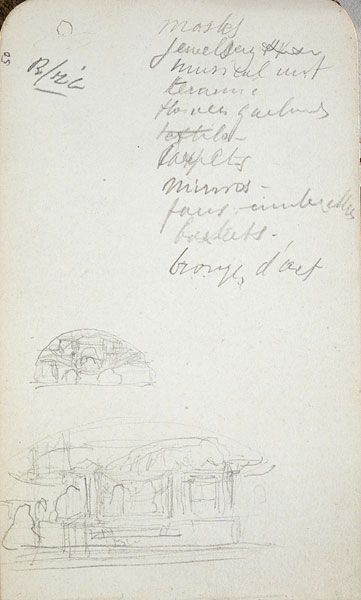 masks
jewellery
musical inst
keramic
flowers garlands
textiles
carpets
mirrors -
fans - umbrellas
baskets -
bronzes d'art